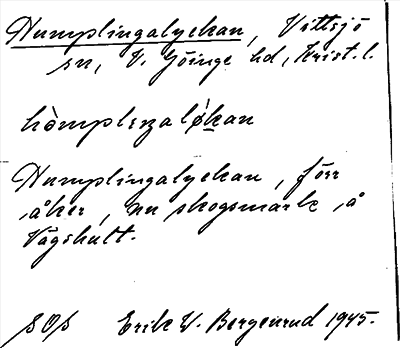 Humplingalyckan, Vittsjö
sn, V. Göinge hd, Krist. l.
Humplingalyckan, förr
åker, nu skogsmark, å
Vågshult.
SOS Erik W. Bergenrud 1945.